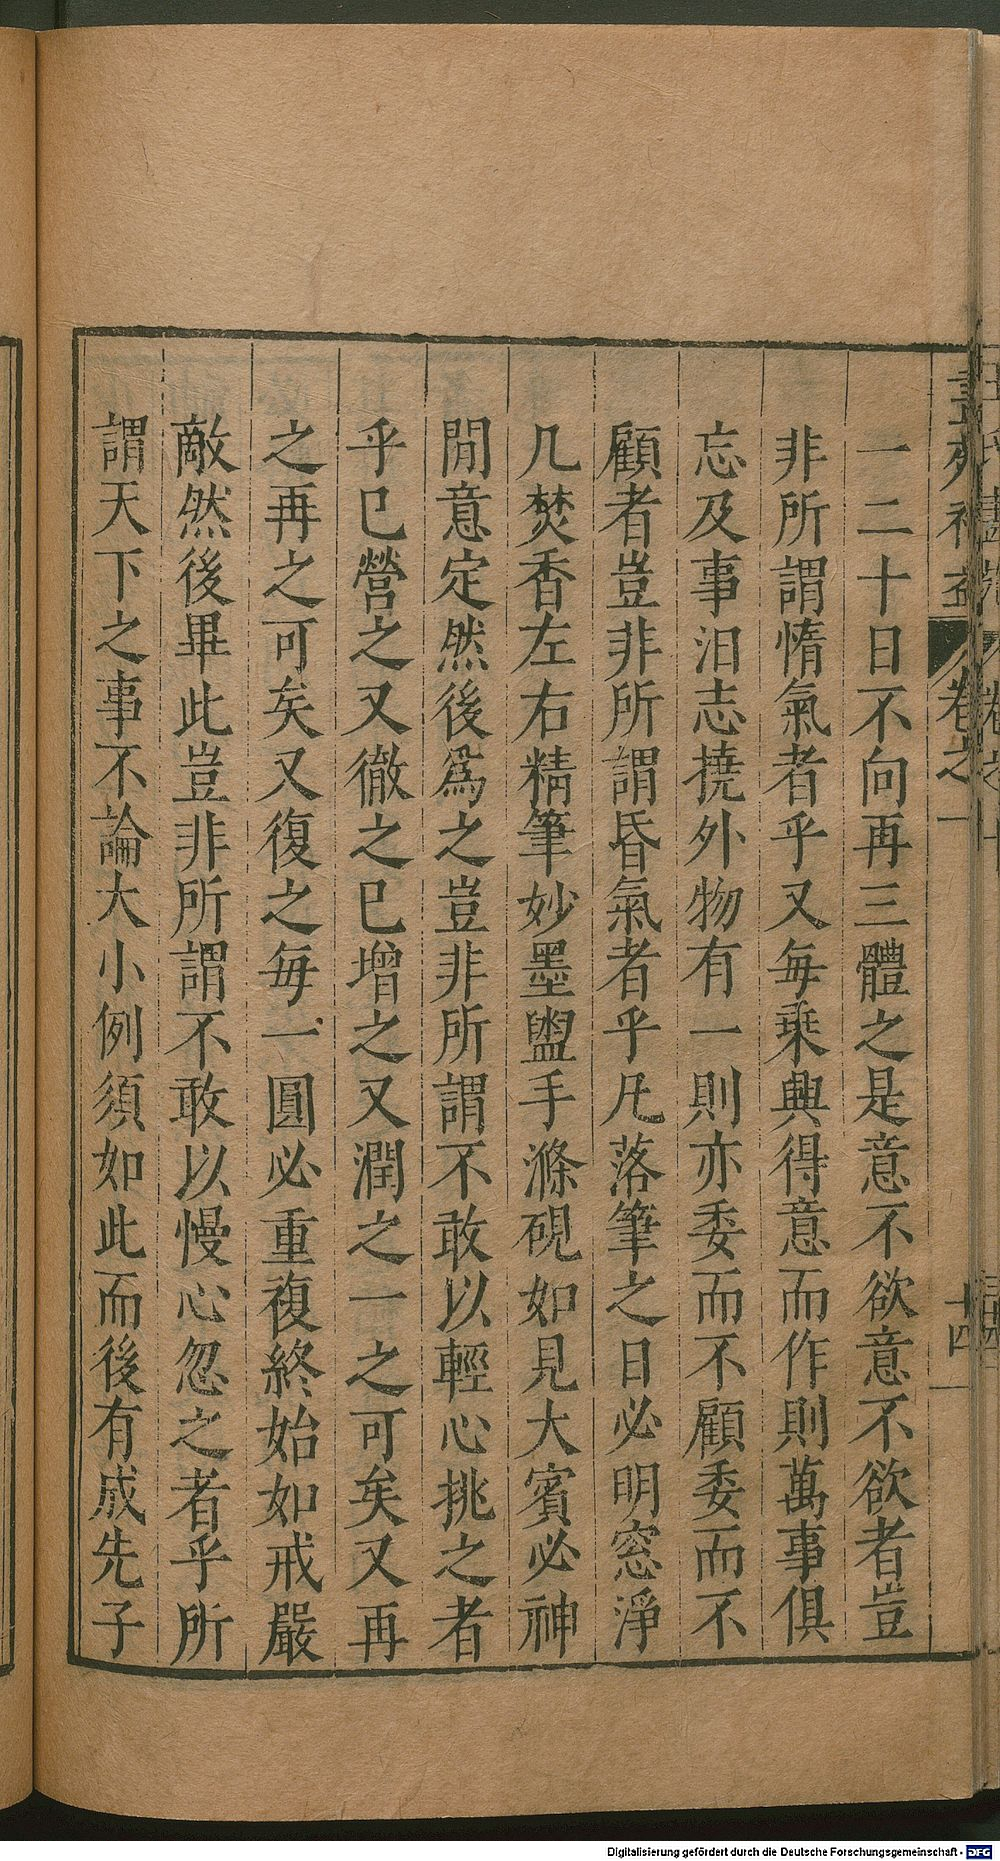 畫苑補益 卷之一 十四
一二十日不向再三體之是意不欲意不欲者豈
非所謂惰氣者乎又每乗興得意而作則萬事俱
忘及事汨志撓外物有一則亦委而不顧委而不
顧者豈非所謂昏氣者乎凡落筆之日必明窓淨
几焚香左右精筆妙墨盥手滌硯如見大賓必神
閒意定然後爲之豈非所謂不敢以輕心挑之者
乎已營之又徹之已增之又潤之一之可矣又再
之再之可矣又復之每一圓必重複終始如戒嚴
敵然後畢此豈非所謂不敢以慢心忽之者乎所
謂天下之事不論大小例須如此而後有成先子
Digitalisierung gefördert durch die Deutsche Forschungsgemeinschaft - DFG